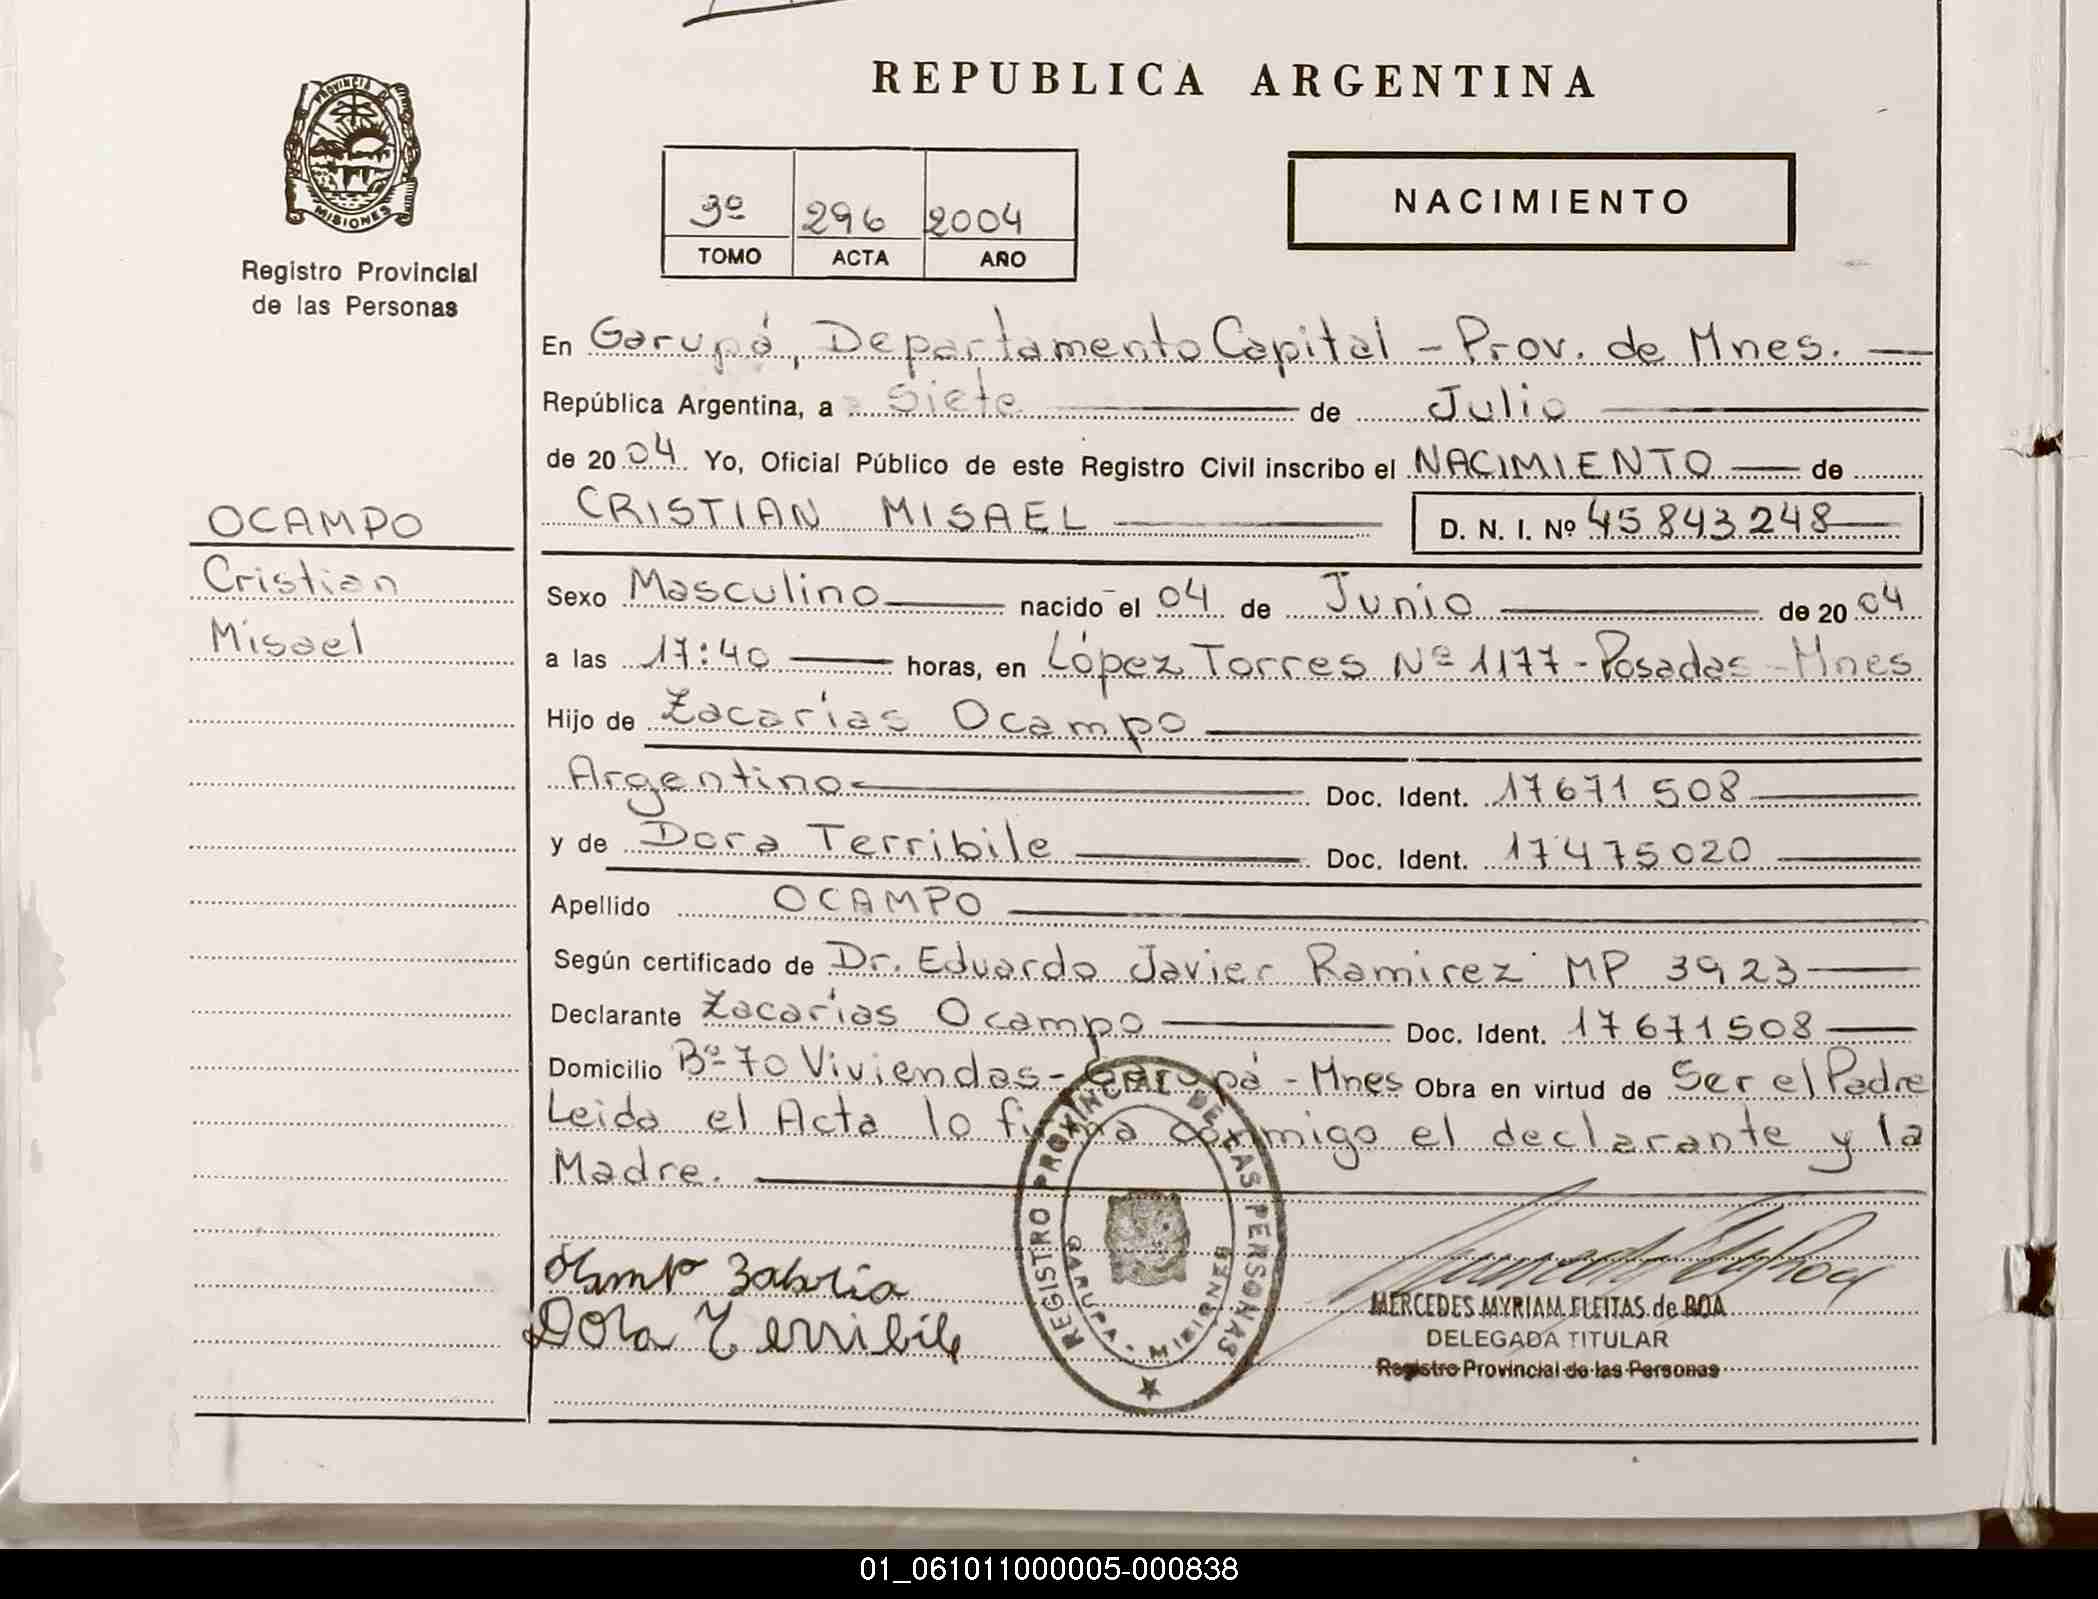 REPUBLICA ARGENTINA
PROVINCIA DE
MISIONES
Registro Provincial
de las Personas
3º 296 2004
TOMO ACTA AÑO
NACIMIENTO
En Garupá, Departamento Capital - Prov. de Mnes.
República Argentina, a Siete de Julio
de 2004 Yo, Oficial Público de este Registro Civil inscribo el NACIMIENTO de
CRISTIAN MISAEL D. N. I. Nº 45843248
OCAMPO
Cristian
Misael
Sexo Masculino nacido el 04 de Junio de 2004
a las 17:40 horas, en López Torres Nº 1177 - Posadas - Mnes
Hijo de Zacarías Ocampo
Argentino Doc. Ident. 17671508
y de Dora Terribile Doc. Ident. 17475020
Apellido OCAMPO
Según certificado de Dr. Eduardo Javier Ramirez MP 3923
Declarante Zacarías Ocampo Doc. Ident. 17671508
Domicilio Bº 70 Viviendas - Garupá - Mnes Obra en virtud de Ser el Padre
Leida el Acta lo firma conmigo el declarante y la
Madre.
REGISTRO PROVINCIAL DE LAS PERSONAS
GARUPA - MISIONES
Dora Terribile
MERCEDES MYRIAM FLEITAS de BOA
DELEGADA TITULAR
Registro Provincial de las Personas
01_061011000005-000838